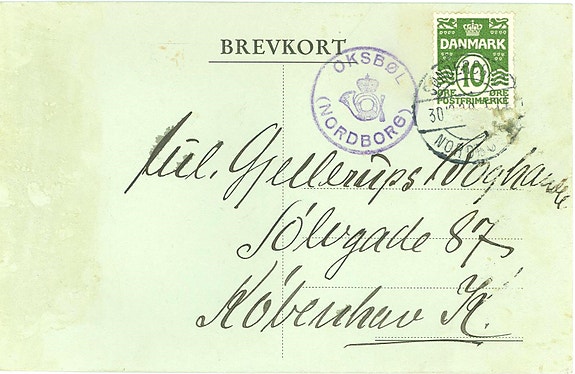 BREVKORT
OKSBØL
(NORDBORG)
DANMARK
10
ØRE ØRE
POSTFRIMÆRKE
30
NORDBO
Jul. Gjellerups Boghandle
Sølvgade 87,
København K.